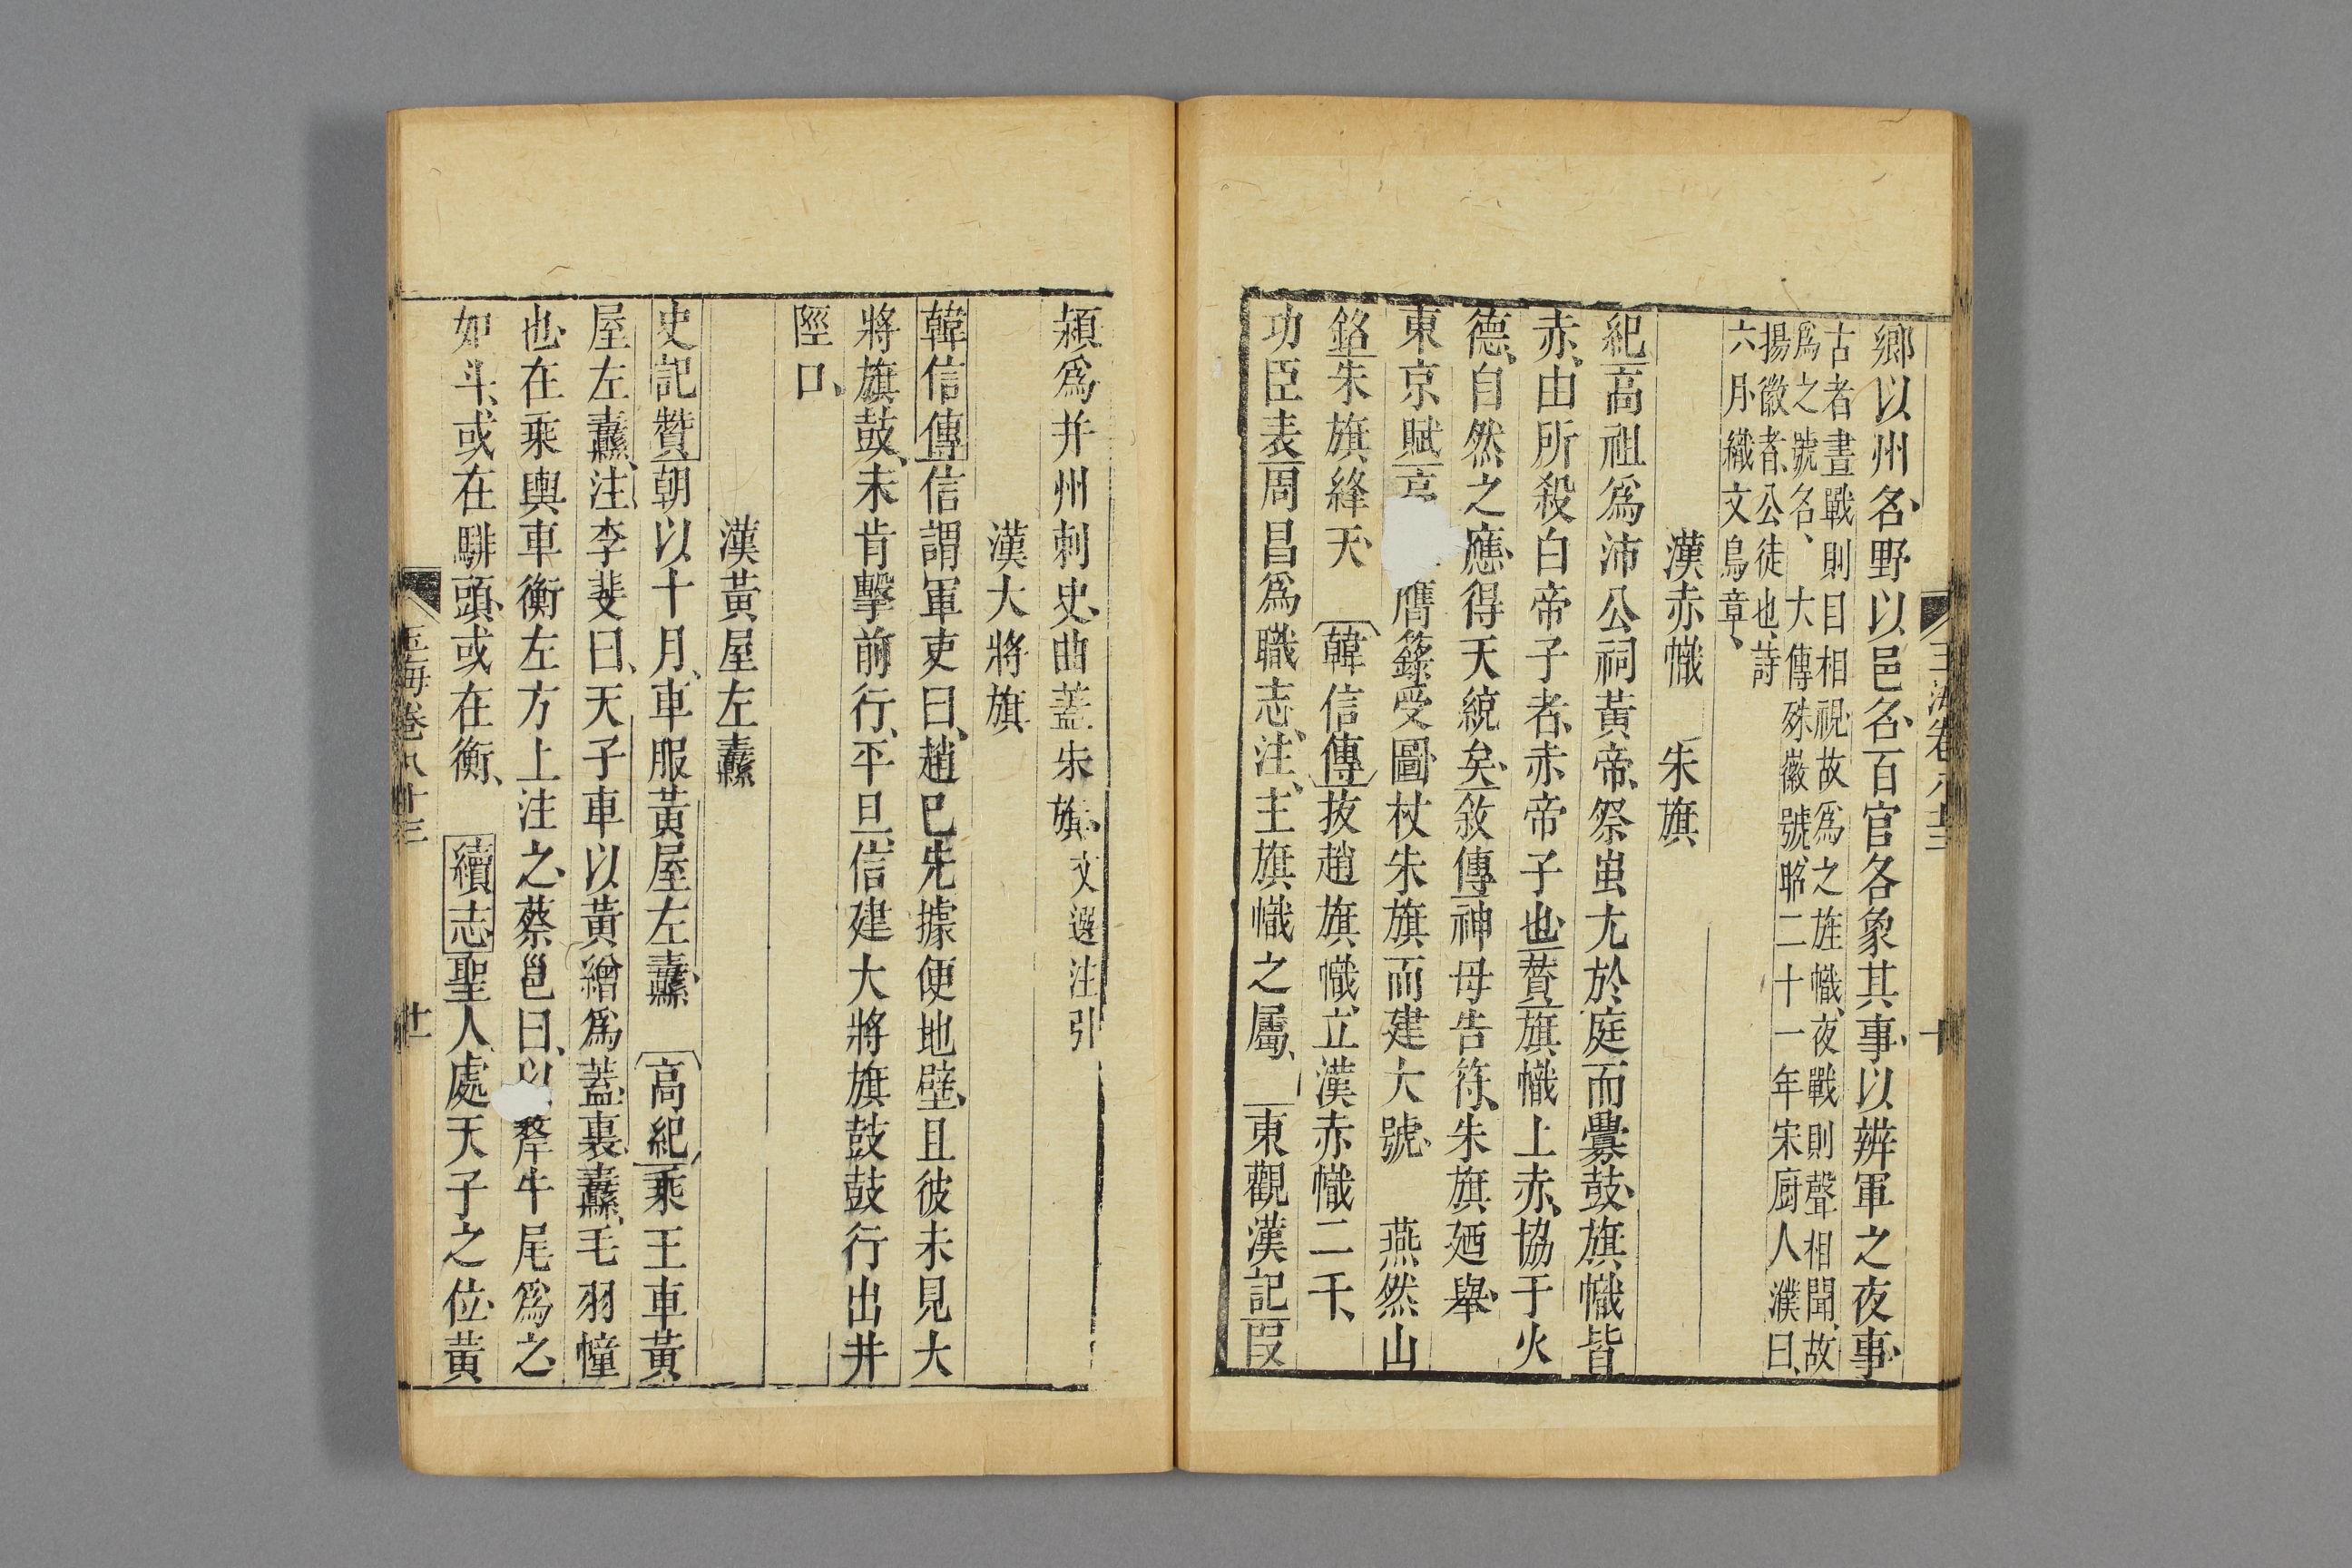 鄉以州名野以邑名百官各象其事以辨軍之夜事
古者晝戰則目相視故爲之旌幟夜戰則聲相聞故
爲之號名、大傳殊徽號昭二十一年宋厨人濮曰、
揚徽者公徒也詩
六月織文鳥章、
漢赤幟　朱旗
紀高祖爲沛公祠黃帝祭蚩尤於庭而釁鼓旗幟皆
赤、由所殺白帝子者赤帝子也贊旗幟上赤協于火
德、自然之應得天統矣敘傳神母告符朱旗廼舉
東京賦高膺籙受圖杖朱旗而建大號　燕然山
銘朱旗絳天　韓信傳拔趙旗幟立漢赤幟二千、
功臣表周昌爲職志、注、主旗幟之屬、東觀漢記段
熲爲并州刺史曲蓋朱旗文選注引
漢大將旗
韓信傳信謂軍吏曰、趙已先據便地壁且彼未見大
將旗鼓、未肯擊前行、平旦信建大將旗鼓鼓行出井
陘口、
漢黃屋左纛
史記贊朝以十月、車服黃屋左纛　高紀乘王車黃
屋左纛、注李斐曰、天子車以黃繒爲蓋裏纛毛羽幢
也在乘輿車衡左方上注之蔡邕曰、以犛牛尾爲之
如斗、或在騑頭或在衡、　續志聖人處天子之位黃
玉海卷八十三　廿一